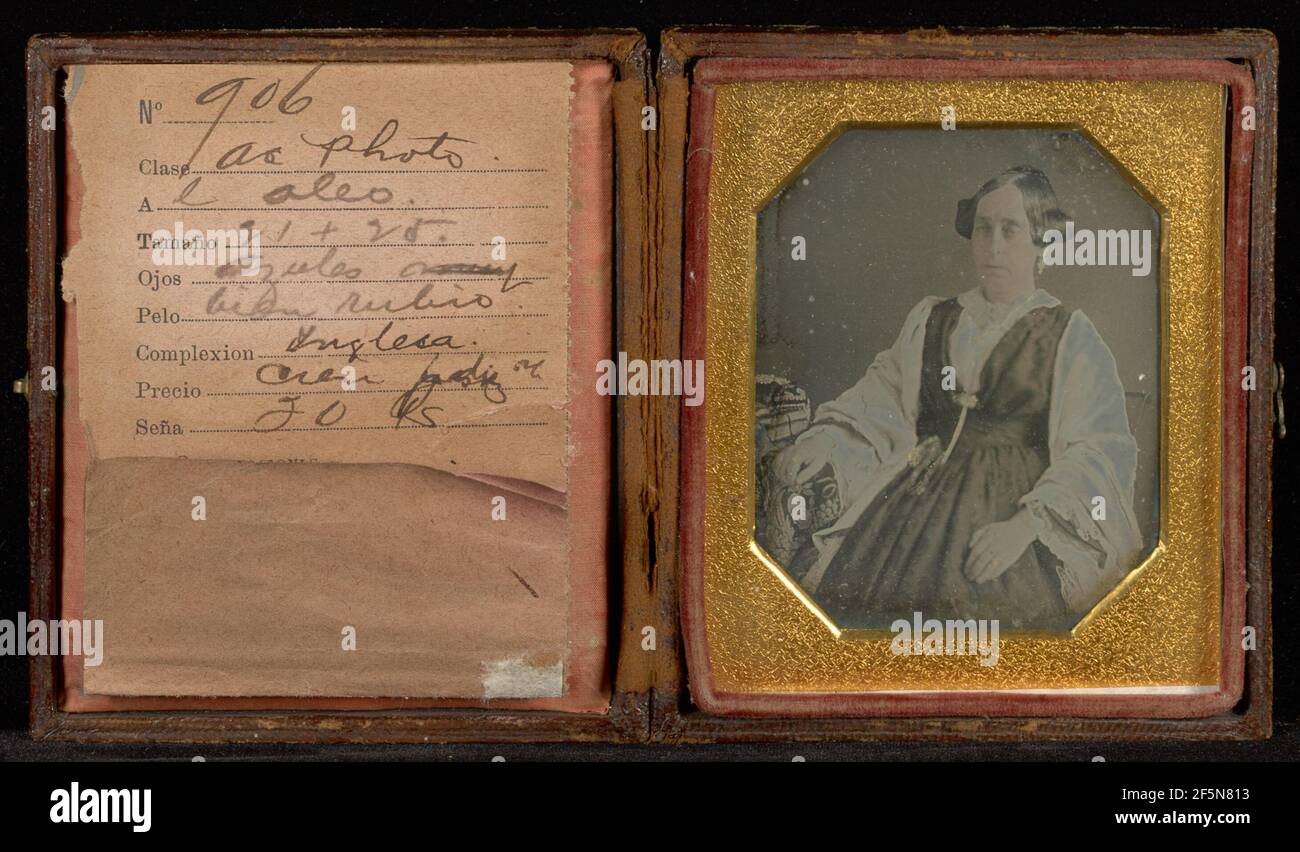 Nº 906
Clase ac Photo.
A l oleo.
Tamaño 21 + 25.
Ojos azules
Pelo bien rubio.
Complexion Inglesa.
Precio
Seña 20 Rs
alamy
alamy
Image ID: 2F5N813
www.alamy.com